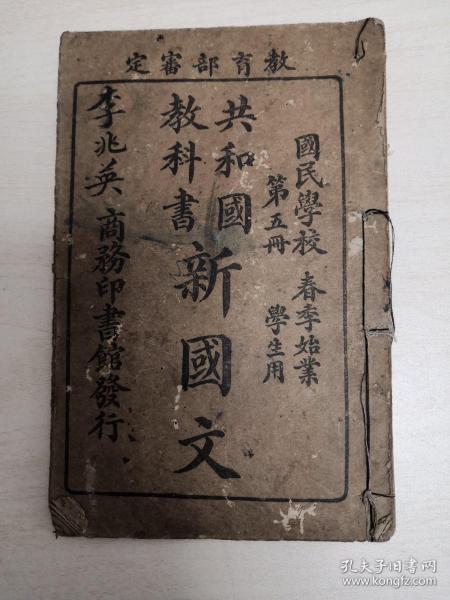 教育部審定
國民學校 春季始業
第五冊 學生用
共和國
教科書
新國文
李兆英 商務印書館發行
孔夫子旧书网
www.kongfz.com